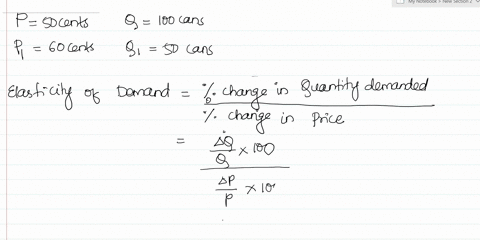 My Notebook > New Section 2
P = 50 cents Q = 100 cans
P1 = 60 cents Q1 = 50 cans
Elasticity of Demand = % change in Quantity demanded
% change in Price
= ΔQ/Q × 100
ΔP/P × 10